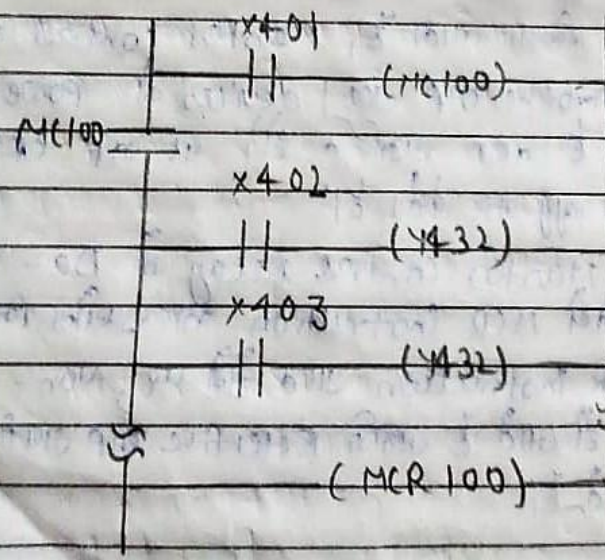 X401
(MC100)
MC100
X402
(Y432)
X403
(Y432)
(MCR 100)